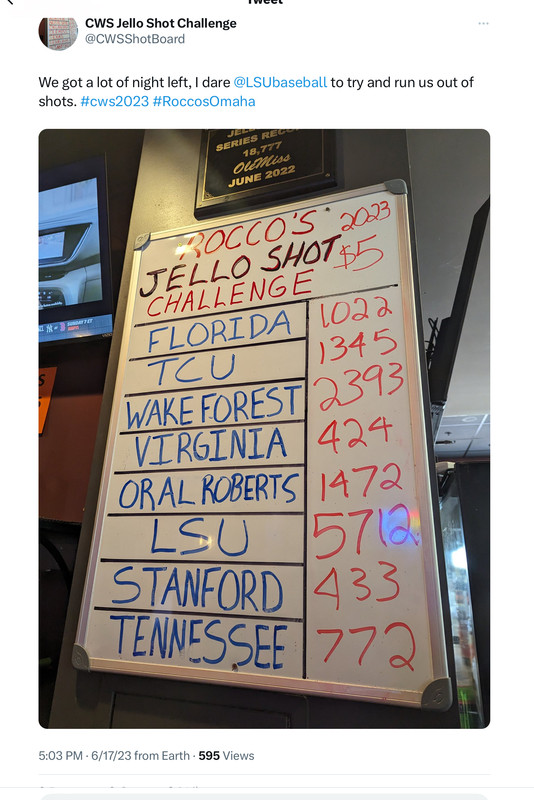 Tweet
CWS Jello Shot Challenge
@CWSShotBoard
We got a lot of night left, I dare @LSUbaseball to try and run us out of
shots. #cws2023 #RoccosOmaha
SERIES RECORD
18,777
Ole Miss
JUNE 2022
ROCCO'S 2023
JELLO SHOT $5
CHALLENGE
FLORIDA 1022
TCU 1345
WAKE FOREST 2393
VIRGINIA 424
ORAL ROBERTS 1472
LSU 5712
STANFORD 433
TENNESSEE 772
5:03 PM · 6/17/23 from Earth · 595 Views